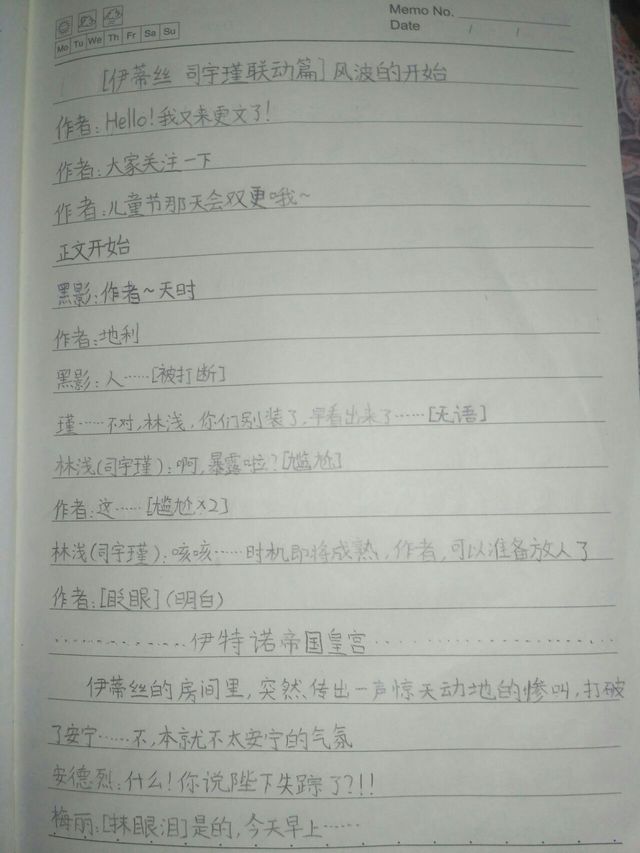 Memo No.
Mo Tu We Th Fr Sa Su
Date / /
[伊蒂丝 司宇瑾联动篇]风波的开始
作者:Hello!我又来更文了!
作者:大家关注一下
作者:儿童节那天会双更哦~
正文开始
黑影:作者~天时
作者:地利
黑影:人……[被打断]
瑾……不对,林浅,你们别装了,早看出来了……[无语]
林浅(司宇瑾):啊,暴露啦?[尴尬]
作者:这……[尴尬×2]
林浅(司宇瑾):咳咳……时机即将成熟,作者,可以准备放人了
作者:[眨眼](明白)
……………伊特诺帝国皇宫……………
伊蒂丝的房间里,突然传出一声惊天动地的惨叫,打破
了安宁……不,本就不太安宁的气氛
安德烈:什么!你说陛下失踪了?!!
梅丽:[抹眼泪]是的,今天早上……